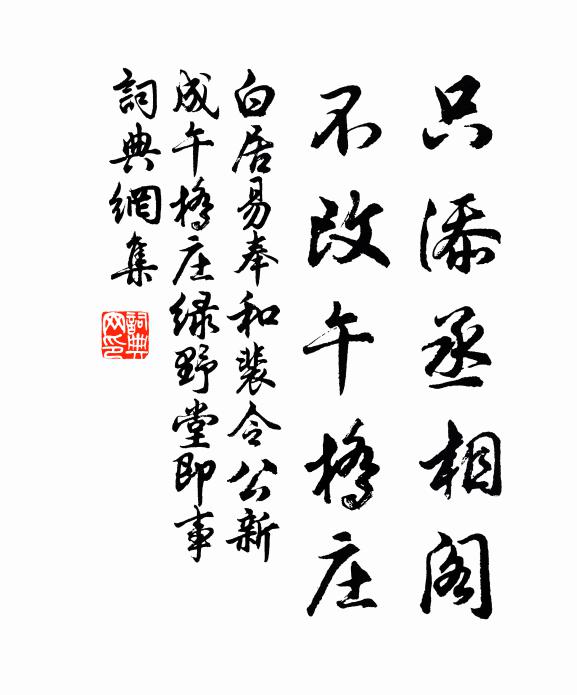 只添丞相阁
不改午橋庄
白居易奉和裴令公新
成午橋庄緑野堂即事
詞典網集
詞典
网印